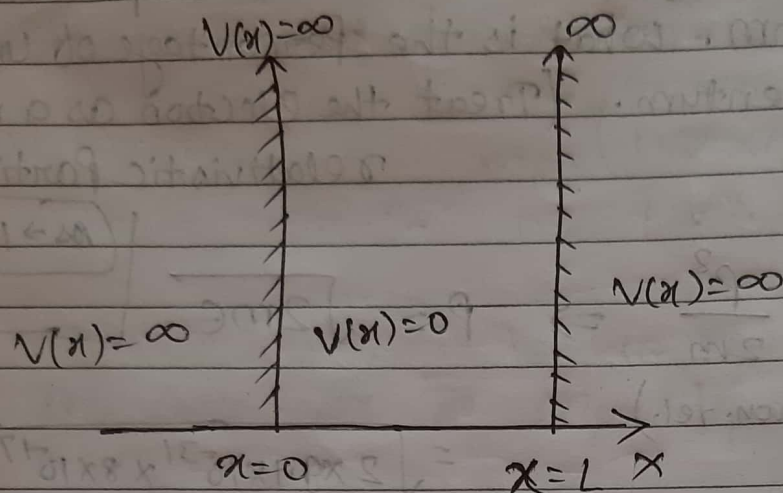 V(x)=∞ ∞
V(x)=∞ V(x)=0 V(x)=∞
x=0 x=L X